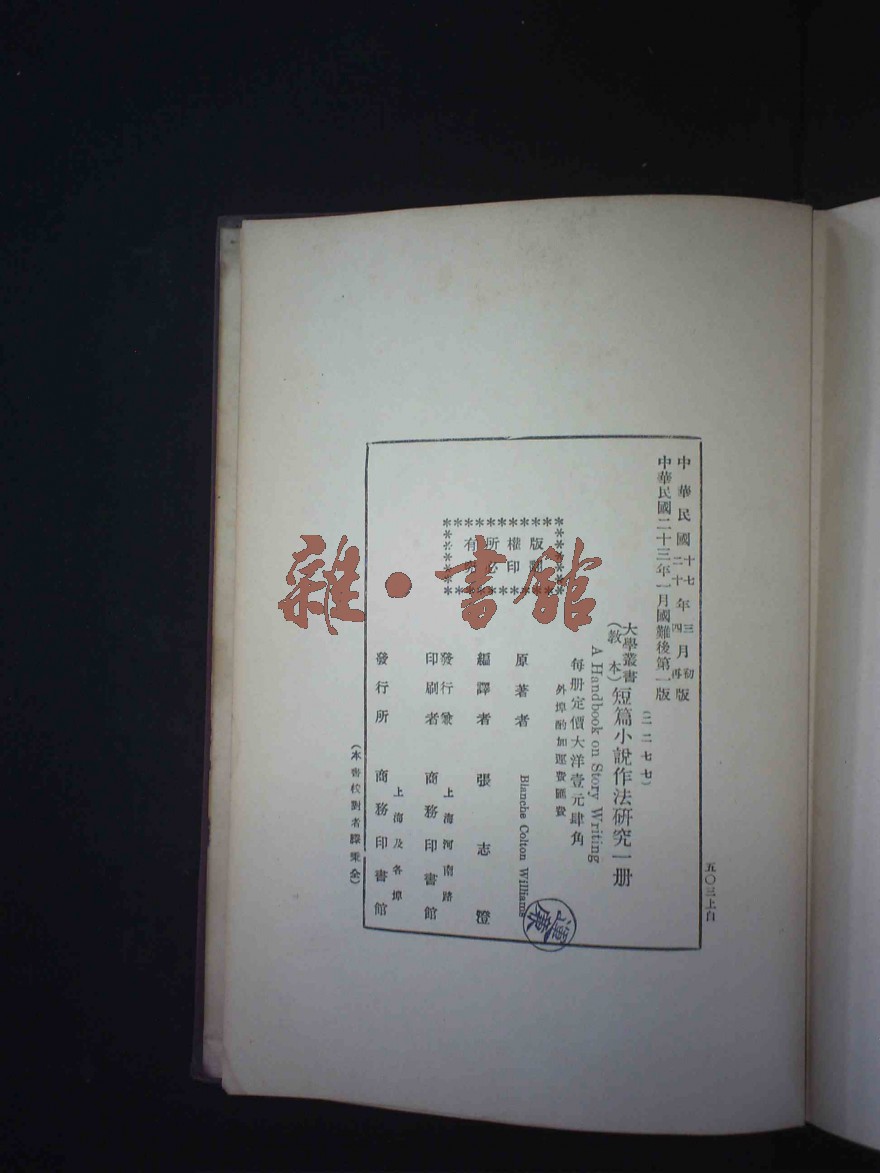 中華民國十七年三月初版
二十四再
中華民國二十三年一月國難後第一版
(二二七七)
大學叢書
(教本)
短篇小說作法研究一册
A Handbook on Story Writing
每册定價大洋壹元肆角
外埠酌加運費匯費
版權所有
翻印必究
原著者 Blanche Colton Williams
編譯者 張志澄
發行兼
印刷者
上海河南路
商務印書館
發行所
上海及各埠
商務印書館
(本書校對者滕秉全)
五〇三上自
雜·書館